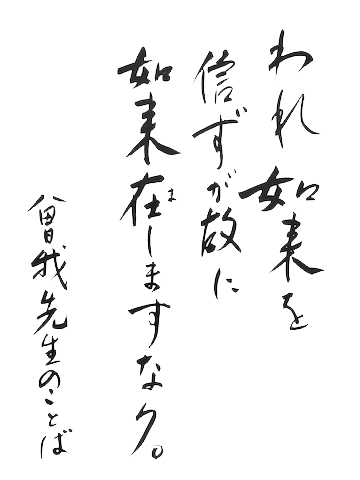 われ如来を
信ずが故に
如来在しますなり。
曽我先生のことば